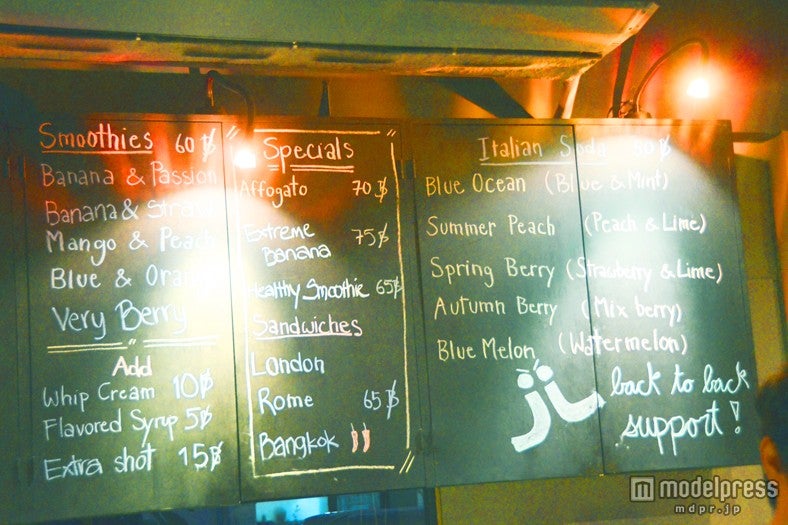 Smoothies 60฿
Banana & Passion
Banana &
Mango & Peach
Blue &
Very Berry
Add
Whip Cream 10฿
Flavored Syrup 5฿
Extra shot 15฿
Specials
Affogato 70฿
Extreme
Banana 75฿
Healthy Smoothie 65฿
Sandwiches
London
Rome 65฿
Bangkok
Italian Soda
Blue Ocean (Blue & Mint)
Summer Peach (Peach & Lime)
Spring Berry (Strawberry & Lime)
Autumn Berry (Mix berry)
Blue Melon (Watermelon)
back to back
support!
m modelpress
mdpr.jp